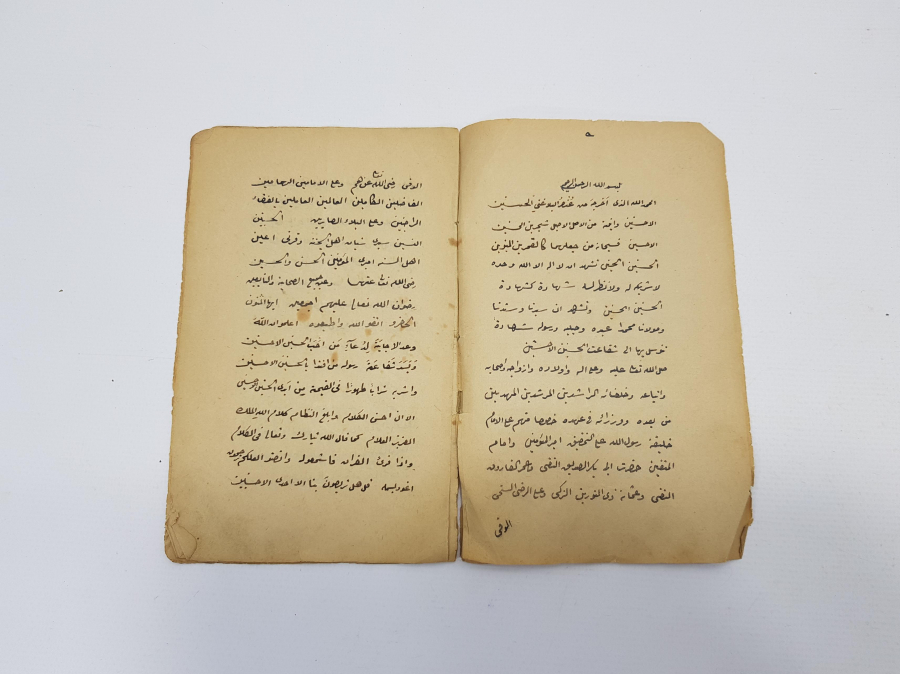 ٩
بسم الله الرحمن الرحيم
الحمد لله الذى اخرج من الحسنين
الاحسنين وانبة من الاصل الاصل الحسنين
الاحسنين فسبحانه من جعلهما كالقمرين النورين
الحسنين الحسنين نشهد ان لا اله الا الله وحده
لا شريك له ولا نظير له شهادة كشهادة
الحسنين الحسنين ونشهد ان سيدنا وسندنا
ومولانا محمد عبده وحبيبه ورسوله شهادة
نتوسل بها الى شفاعت الحسنين الاحسنين
صلى الله تعا عليه وعلى اله واولاده وازواجه واصحابه
واتباعه وخلفائه الراشدين المرشدين المهديين
من بعده ووزرائه فى عهده خصوصا منهم على الامام
خليفة رسول الله على التحقيق امير المؤمنين وامام
المتقين حضرت ابى بكر الصديق التقى وعمر الفاروق
النقى وعثمان ذى النورين الزكى وعلى الرضى السخى
الوفى
الوفى رضى الله تعا عنهم وعلى الامامين الهمامين
الفاضلين الكاملين العالمين العاملين بالقضاء
الراضيين وعلى البلاء الصابرين الحسنين
سيدى شبان اهل الجنة وقرتى اعين
اهل السنة امرى المؤمنين الحسن والحسين
رضى الله تعا عنهما وعلى جميع الصحابة والتابعين
رضوان الله تعالى عليهم اجمعين ايها المؤمنون
الحاضرو اتقو الله واطيعوه اعلموا ان الله
وعد الاجابة لدعاء من احب الحسنين الاحسنين
شفاعة رسوله من اقتدا بالحسنين الاحسنين
واشربه شرابا طهورا فى القيمة من ايدى الحسنين
الا ان احسن الكلام وابلغ النظام كلام الله الملك
العزيز العلام كما قال الله تبارك وتعالى فى الكلام
واذا قرئ القران فاستمعوله وانصتو لعلكم ترحمون
اعوذ بسمه قل هل تربصون بنا الا احدى الاحسنين